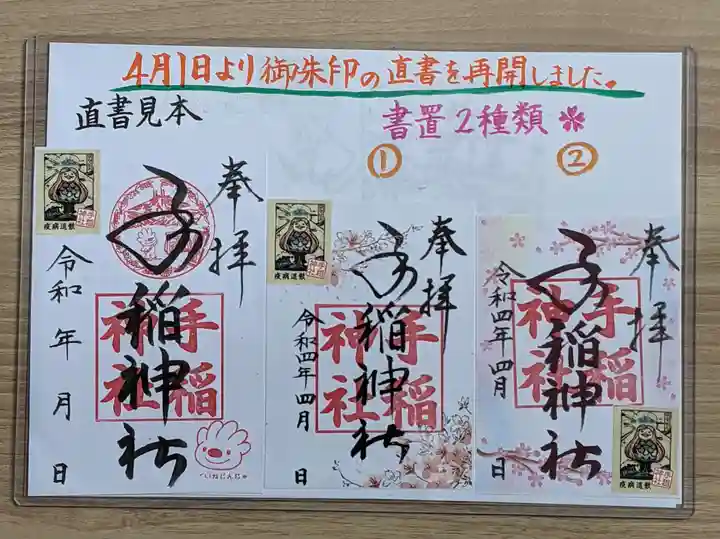 4月1日より御朱印の直書を再開しました。
直書見本
書置2種類
①
②
奉拝
手稲神社
手稲
神社
疫病退散
令和 年 月 日
ていねじんじゃ
奉拝
手稲神社
手稲
神社
疫病退散
令和四年四月 日
奉拝
手稲神社
手稲
神社
疫病退散
令和四年四月 日